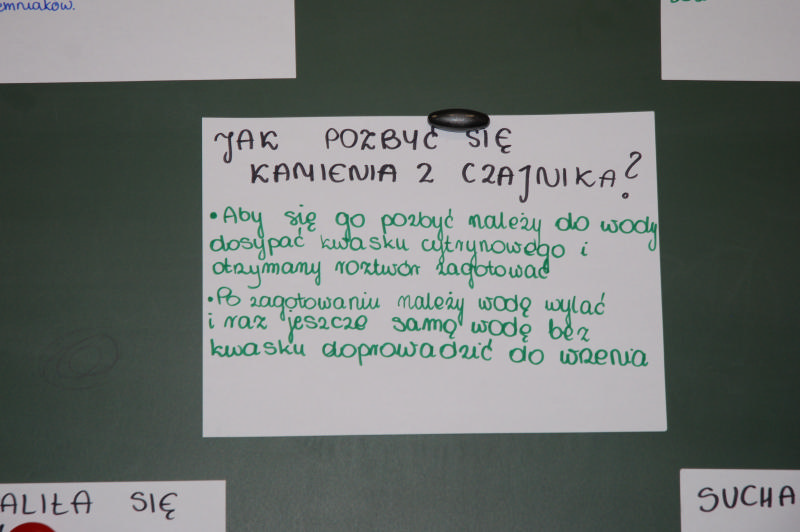 emniaków.
JAK POZBYĆ SIĘ
KAMIENIA Z CZAJNIKA?
• Aby się go pozbyć należy do wody
dosypać kwasku cytrynowego i
otrzymany roztwór zagotować
• Po zagotowaniu należy wodę wylać
i raz jeszcze samą wodę bez
kwasku doprowadzić do wrzenia
ALIŁA SIĘ
SUCHA